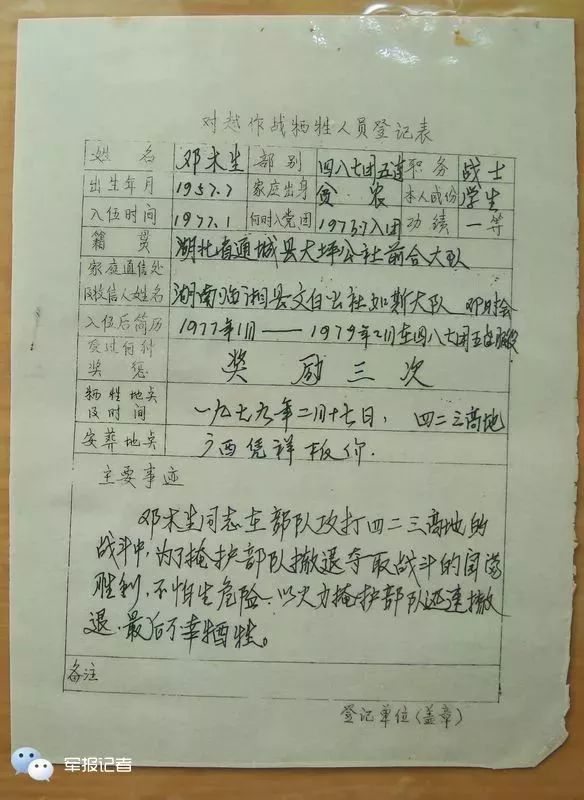 对越作战牺牲人员登记表
姓名 邓木生 部别 四八七团五连 职务 战士
出生年月 1957.7 家庭出身 贫农 本人成份 学生
入伍时间 1977.1 何时入党团 1973.7入团 功绩 一等
籍贯 湖北省通城县大坪公社前合大队
家庭通信处
及收信人姓名 湖南临湘县文白公社如斯大队 邓
入伍后简历 1977年1月——1979年2月在四八七团五连服役
受过何种
奖惩 奖励三次
牺牲地点
及时间 一九七九年二月十七日,四二三高地
安葬地点 广西凭祥板
主要事迹
邓木生同志在部队攻打四二三高地的
战斗中,为了掩护部队撤退夺取战斗的圆满
胜利,不怕生危险.以火力掩护部队迅速撤
退.最后不幸牺牲。
备注
登记单位(盖章)
军报记者